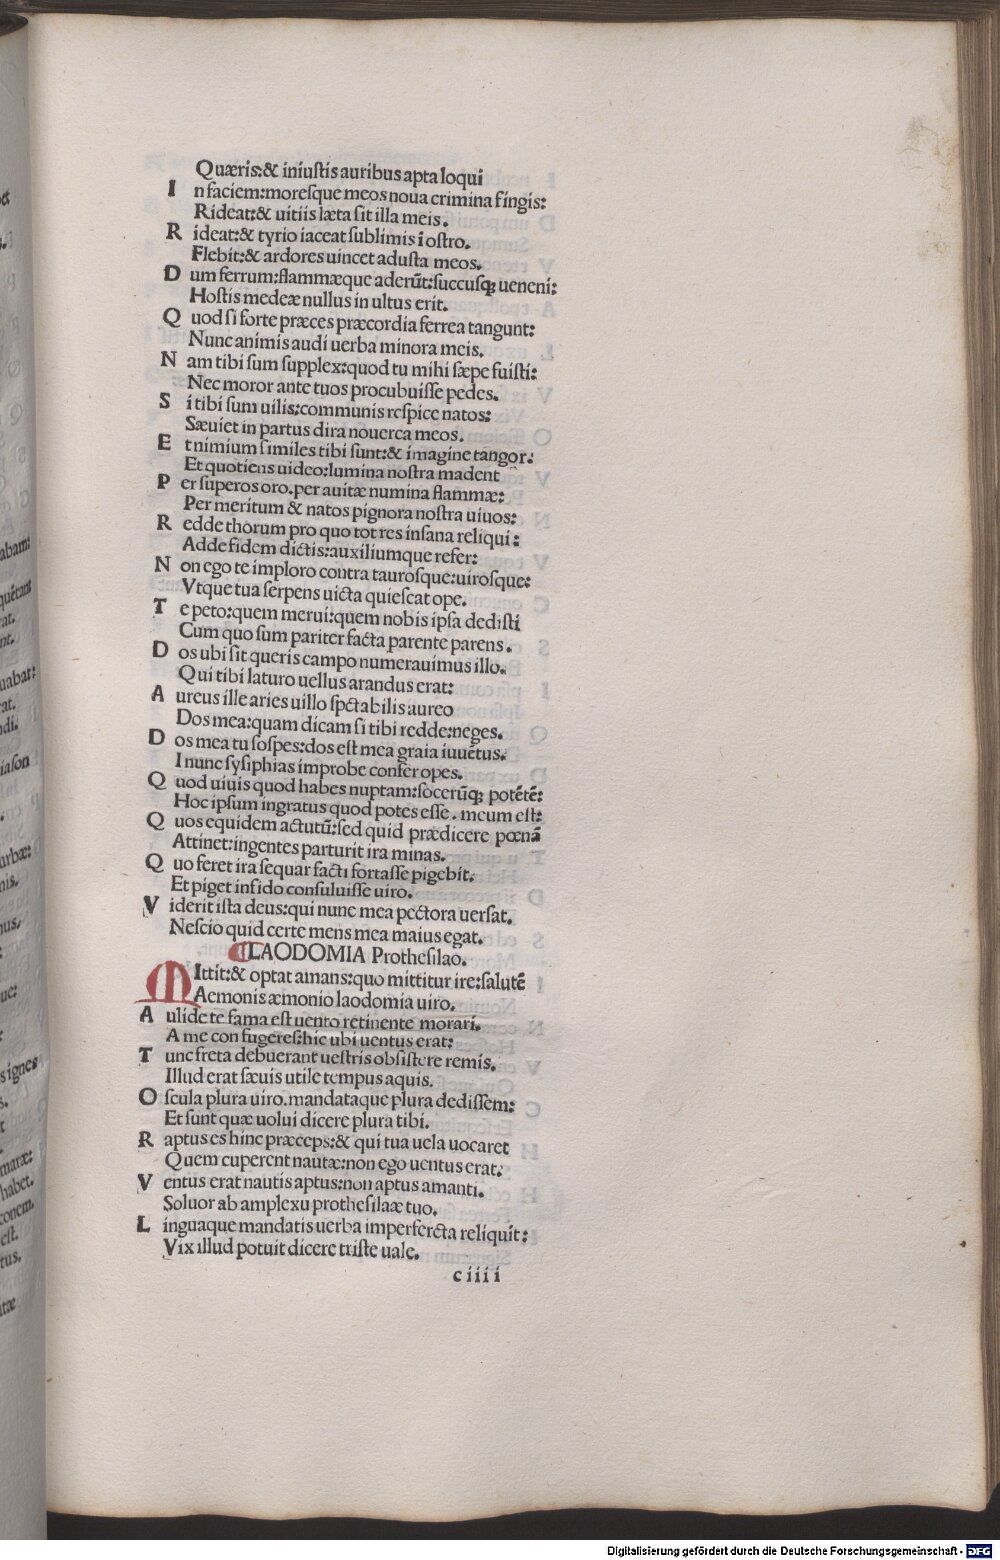 Quæris:& iniustis auribus apta loqui
I n faciem:moresque meos noua crimina fingis:
Rideat:& uitiis læta sit illa meis.
R ideat:& tyrio iaceat sublimis ĩ ostro.
Flebit:& ardores uincet adusta meos.
D um ferrum:flammæque aderũt:succusq; ueneni:
Hostis medeæ nullus in ultus erit.
Q uod si forte præces præcordia ferrea tangunt:
Nunc animis audi uerba minora meis.
N am tibi sum supplex:quod tu mihi sæpe fuisti:
Nec moror ante tuos procubuisse pedes.
S i tibi sum uilis:communis respice natos:
Sæuiet in partus dira nouerca meos.
E t nimium similes tibi sunt:& imagine tangor:
Et quotiens uideo:lumina nostra madent
P er superos oro.per auitæ numina flammæ:
Per meritum & natos pignora nostra uiuos:
R edde thorum pro quo tot res insana reliqui:
Adde fidem dictis:auxiliumque refer:
N on ego te imploro contra taurosque:uirosque:
Vtque tua serpens uicta quiescat ope.
T e peto:quem merui:quem nobis ipsa dedisti
Cum quo sum pariter facta parente parens.
D os ubi sit queris campo numerauimus illo.
Qui tibi laturo uellus arandus erat:
A ureus ille aries uillo spctabilis aureo
Dos mea:quam dicam si tibi redde:neges.
D os mea tu sospes:dos est mea graia iuuẽtus:
I nunc sysiphias improbe confer opes.
Q uod uiuis quod habes nuptam:socerũq; potẽtẽ:
Hoc ipsum ingratus quod potes esse. meum est:
Q uos equidem actutũ:sed quid prædicere pœnã
Attinet:ingentes parturit ira minas.
Q uo feret ira sequar facti fortasse pigebit.
Et piget infido consuluisse uiro.
V iderit ista deus:qui nunc mea pectora uersat.
Nescio quid certe mens mea maius egat.
LAODOMIA Prothesilao.
MIttit:& optat amans:quo mittitur ire:salutẽ
Aemonis æmonio laodomia uiro.
A ulide te fama est uento retinente morari.
A me con fugeres:hic ubi uentus erat:
T unc freta debuerant uestris obsistere remis.
Illud erat sæuis utile tempus aquis.
O scula plura uiro.mandataque plura dedissem:
Et sunt quæ uolui dicere plura tibi.
R aptus es hinc præceps:& qui tua uela uocaret
Quem cuperent nautæ:non ego uentus erat:
V entus erat nautis aptus:non aptus amanti.
Soluor ab amplexu prothesilaæ tuo.
L inguaque mandatis uerba imperfercta reliquit:
Vix illud potuit dicere triste uale.
ciiii
Digitalisierung gefördert durch die Deutsche Forschungsgemeinschaft - DFG